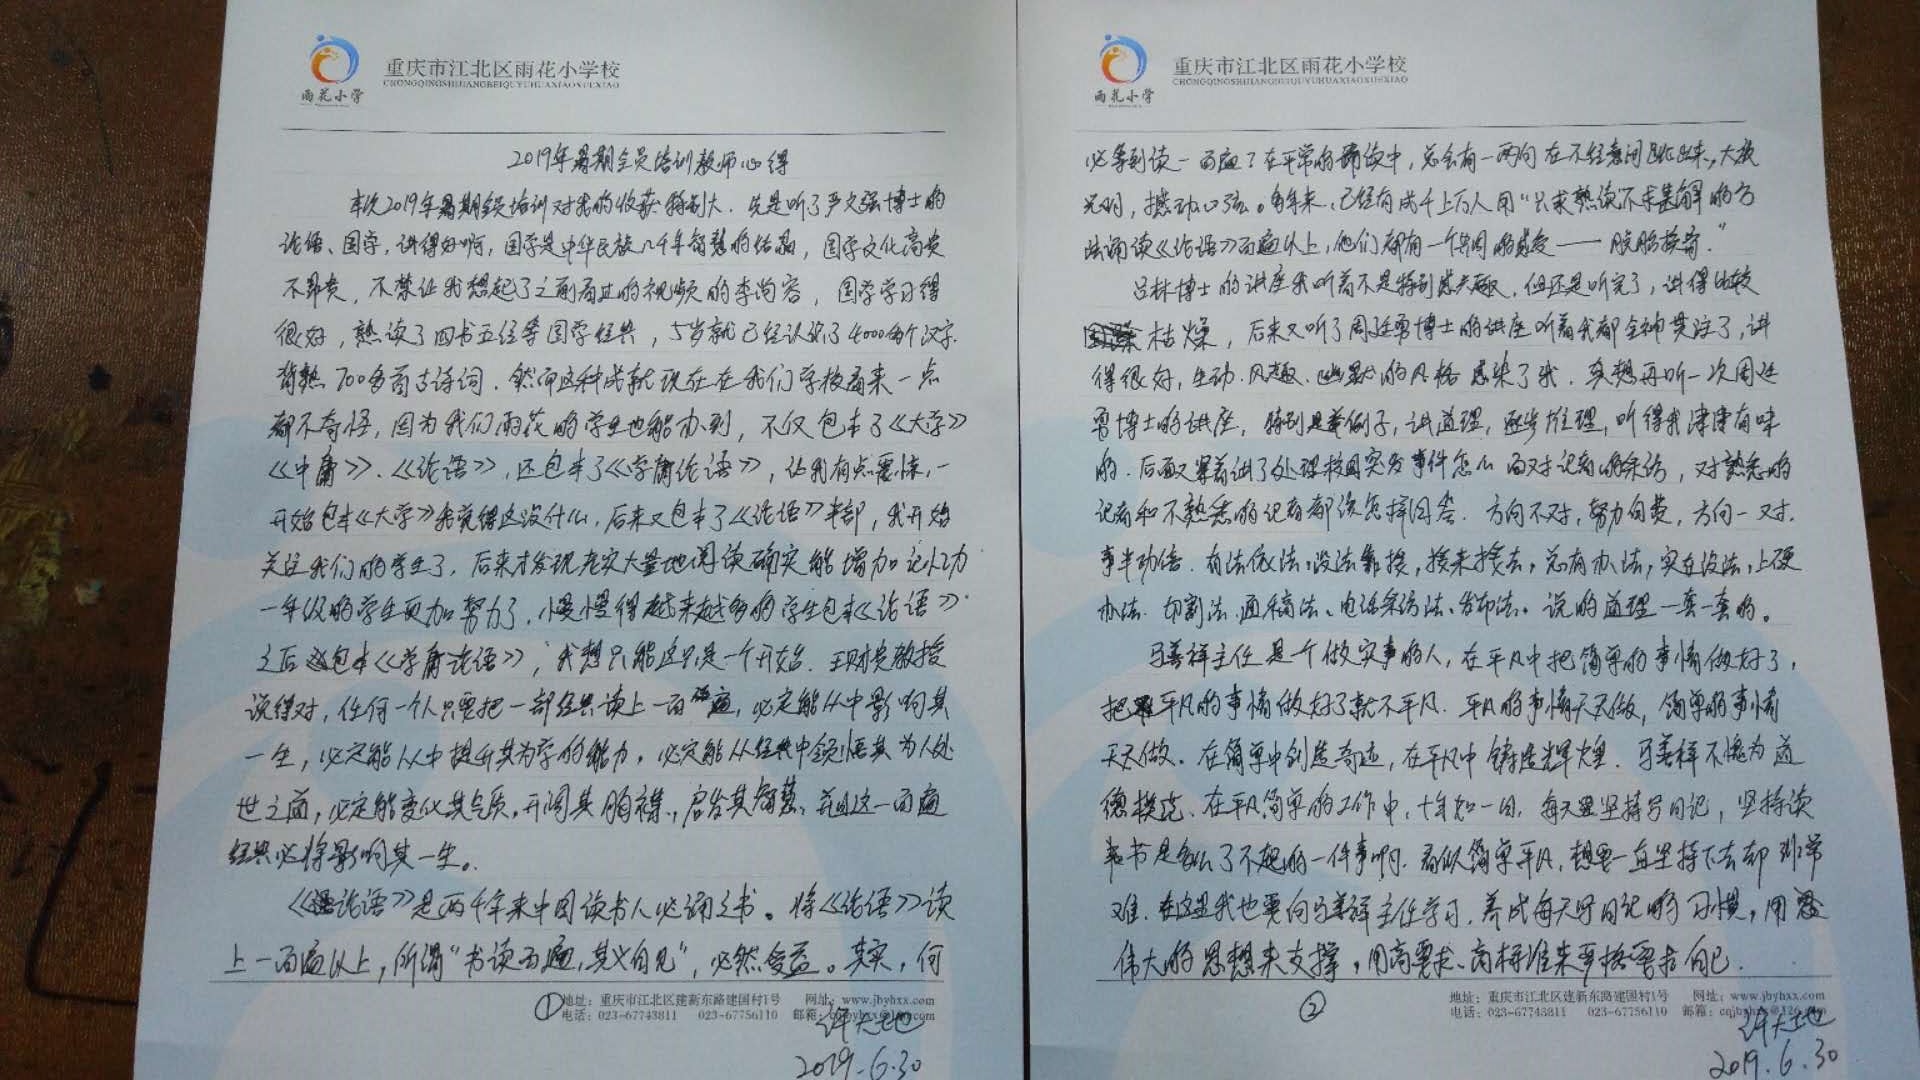 雨花小学
重庆市江北区雨花小学校
CHONGQINGSHIJIANGBEIQUYUHUAXIAOXUEXIAO
2019年暑期全员培训教师心得
本次2019年暑期全员培训对我的收获特别大.先是听了严文强博士的
论语、国学,讲得好啊,国学是中华民族几千年智慧的结晶,国学文化高贵
不昂贵,不禁让我想起了之前看过的视频的李尚容,国学学习得
很好,熟读了四书五经等国学经典,5岁就已经认识了4000多个汉字.
背熟700多首古诗词.然而这种成就现在在我们学校看来一点
都不奇怪,因为我们雨花的学生也能办到,不仅包本了《大学》
《中庸》、《论语》,还包本了《学庸论语》,让我有点震惊,一
开始包本《大学》我觉得这没什么,后来又包本了《论语》半部,我开始
关注我们的学生了,后来才发现老实大量地阅读确实能增加记忆力
一年级的学生更加努力了,慢慢得越来越多的学生包本《论语》.
之后包本《学庸论语》,我想只能这只是一个开始.王财贵教授
说得对,任何一个人只要把一部经典读上一百遍,必定能从中影响其
一生,必定能从中提升其为学的能力,必定能从经典中领悟其为人处
世之道,必定能变化其气质,开阔其胸襟,启发其智慧,并且这一百遍
经典必将影响其一生。
《论语》是两千年来中国读书人必诵之书。将《论语》读
上一百遍以上,所谓“书读百遍,其义自见”,必然受益。其实,何
①
地址:重庆市江北区建新东路建国村1号 网址:www.jbyhxx.com
电话:023-67743811 023-67756110 邮箱:
许大地
2019.6.30
雨花小学
重庆市江北区雨花小学校
CHONGQINGSHIJIANGBEIQUYUHUAXIAOXUEXIAO
必等到读一百遍?在平常的诵读中,总会有一两句在不经意间跳出来,大放
光明,撼动心弦。多年来,已经有成千上万人用“只求熟读不求甚解的方
法诵读《论语》百遍以上,他们都有一个共同的感受——脱胎换骨.”
吕林博士的讲座我听着不是特别感兴趣,但还是听完了,讲得比较
枯燥,后来又听了周廷勇博士的讲座听着我都全神贯注了,讲
得很好,生动.风趣.幽默的风格感染了我.真想再听一次周廷
勇博士的讲座,特别是举例子,讲道理,逐步推理,听得我津津有味
的.后面又穿着讲了处理校园突发事件怎么面对记者的采访,对熟悉的
记者和不熟悉的记者都该怎样回答.方向不对,努力白费,方向一对.
事半功倍.有法依法,没法靠挨,挨来挨去,总有办法,实在没法,上硬
办法.切割法.通稿法、电话采访法、发布法。说的道理一套一套的。
马善祥主任是个做实事的人,在平凡中把简单的事情做好了,
把平凡的事情做好了就不平凡.平凡的事情天天做,简单的事情
天天做.在简单中创造奇迹,在平凡中铸造辉煌.马善祥不愧为道
德模范、在平凡简单的工作中,十年如一日.每天坚持写日记,坚持读
书是多么了不起的一件事啊.看似简单平凡,想要一直坚持下去却非常
难.在这里我也要向马善祥主任学习.养成每天写日记的习惯,用
伟大的思想来支撑,用高要求、高标准来严格要求自己.
②
地址:重庆市江北区建新东路建国村1号 网址:www.jbyhxx.com
电话:023-67743811 023-67756110 邮箱:
许大地
2019.6.30